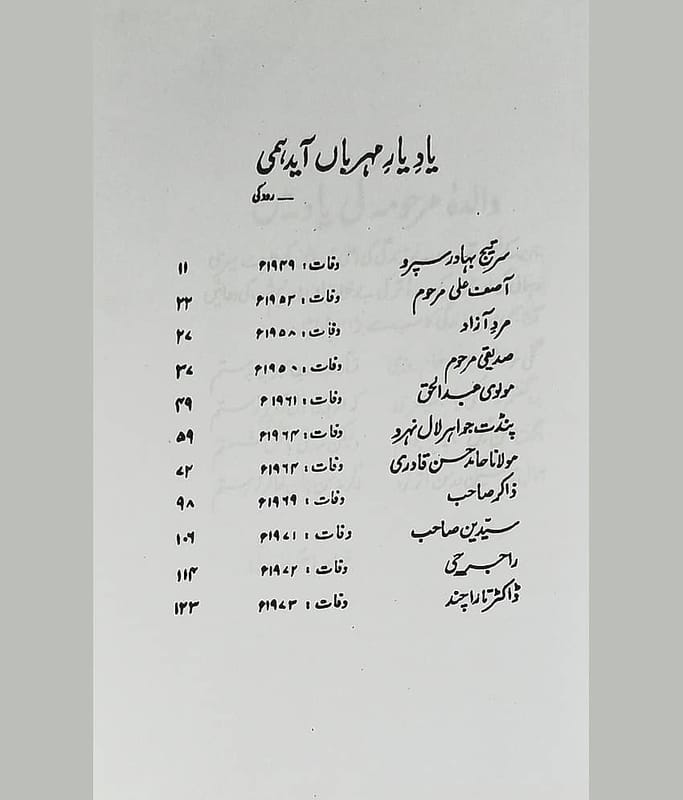 یادِ یارِ مہرباں آید ہمی
— رودکی
سر تیج بہادر سپرو وفات : ۱۹۴۹ء ۱۱
آصف علی مرحوم وفات : ۱۹۵۳ء ۲۲
مردِ آزاد وفات : ۱۹۵۸ء ۲۷
صدیقی مرحوم وفات : ۱۹۵۰ء ۳۷
مولوی عبدالحق وفات : ۱۹۶۱ء ۴۹
پنڈت جواہر لال نہرو وفات : ۱۹۶۴ء ۵۹
مولانا حامد حسن قادری وفات : ۱۹۶۴ء ۷۲
ذاکر صاحب وفات : ۱۹۶۹ء ۹۸
سیّدین صاحب وفات : ۱۹۷۱ء ۱۰۶
راجہ جی وفات : ۱۹۷۲ء ۱۱۴
ڈاکٹر تارا چند وفات : ۱۹۷۳ء ۱۲۳